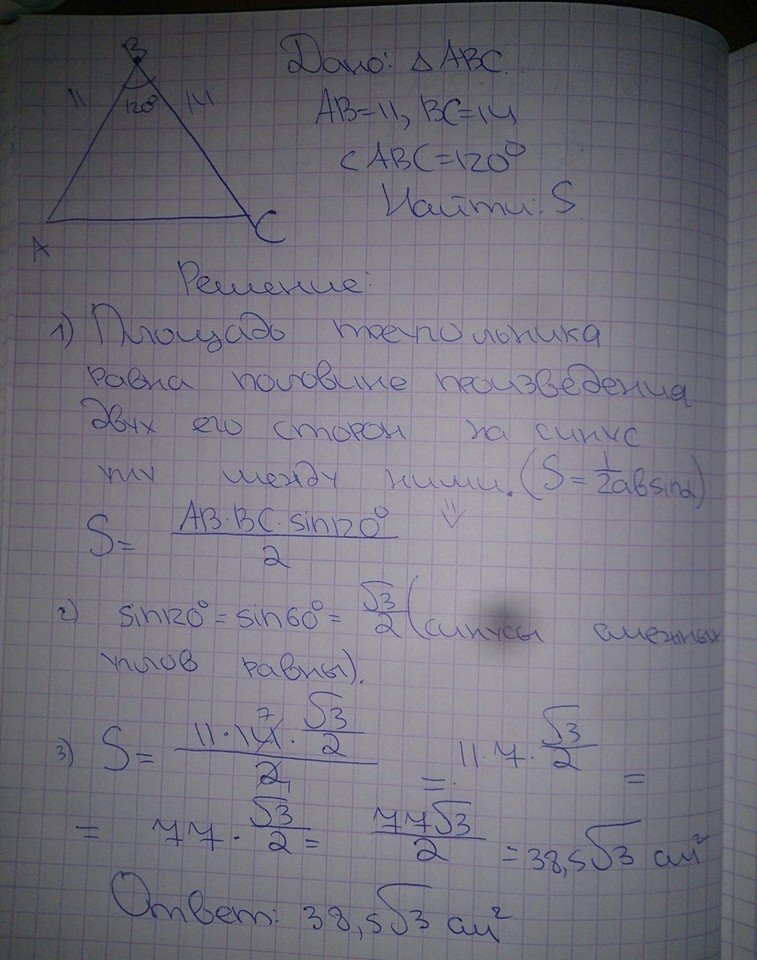 B
11
120°
14
A
C
Дано: △ ABC.
AB=11, BC=14
∠ABC=120°
Найти: S
Решение:
1) Площадь треугольника
равна половине произведения
двух его сторон на синус
углу между ними. (S = 1/2 ab sinα)
⇓
S = (AB·BC·sin120°)/2
2) sin120° = sin60° = √3/2 (синусы смежных
углов равны).
3) S = (11·14·√3/2)/2 = 11·7·√3/2 =
7
1
= 77·√3/2 = 77√3/2 = 38,5√3 см²
Ответ: 38,5√3 см²